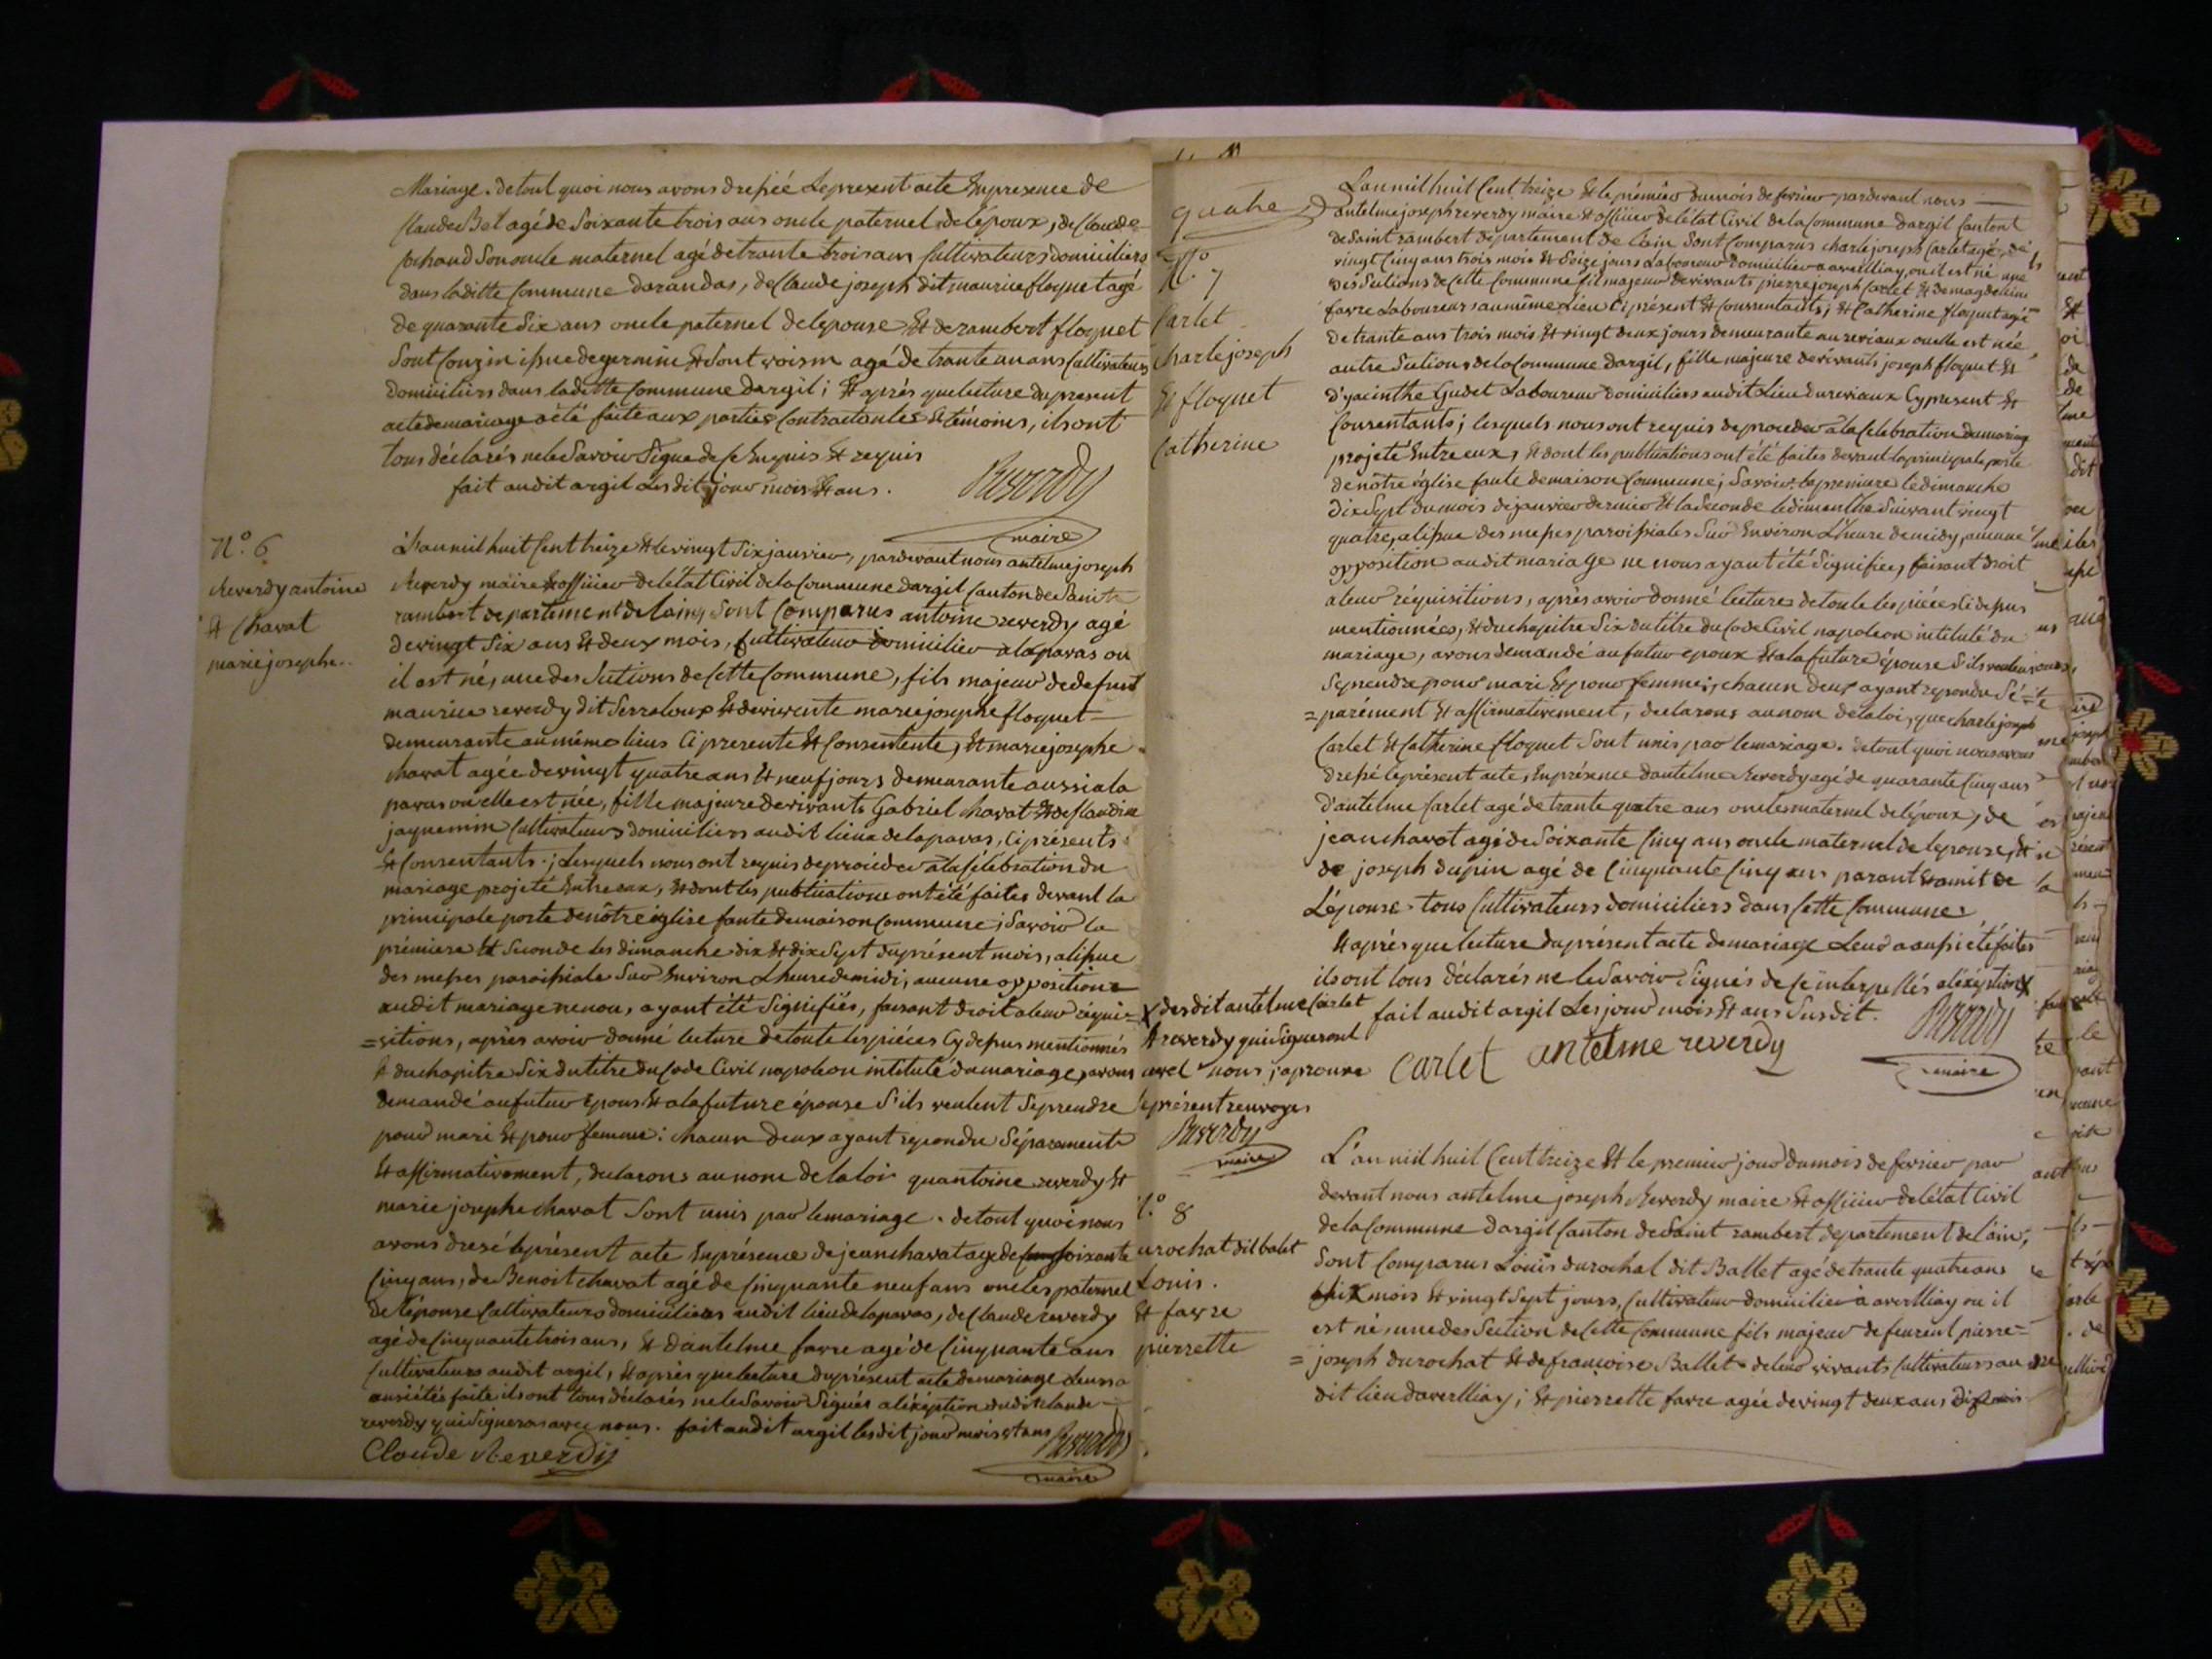 Mariage. detout quoi nous avons dressée Le present acte En presence de
Claude Bel agé de Soixante trois ans oncle paternel de l'époux, de Claude
Cochaud Son oncle maternel agé de trante trois ans Cultivateurs domiciliers
dans laditte Commune darandas, de Claude joseph dit maurice floquet agé
de quarante Six ans oncle paternel de lepouse Et de rambert floquet
Sont Couzin issue de germine Et Sont voisin agé de trante un ans Cultivateurs
domiciliers dans laditte Commune dargil ; Et aprés que lecture du present
acte de mariage a été faite aux parties Contractantes Et témoins, ils ont
tous déclarés ne le Savoir Signe de ce Enquis Et requis
fait audit argil Lesdit jour mois Et ans.
Reverdy
maire
N.° 6
Reverdy antoine
Et Chavat
marie josephe..
L'an mil huit Cent treize Et le vingt Six janvier, pardevant nous antelme joseph
Reverdy maire Et officier de létat Civil de la Commune dargil Canton de Saint
rambert departement de lain, Sont Comparus antoine reverdy agé
de vingt Six ans Et deux mois, Cultivateur domicilier a laparas ou
il est né, une des Sections de Cette Commune, fils majeur de defunt
maurice reverdy dit Serraloux Et de vivente marie josephe floquet
demeurante au même lieus Ci presente Et Consentente, Et marie josephe
chavat agée de vingt quatre ans Et neuf jours demeurante aussi a la
paras ou elle est née, fille majeure de vivants Gabriel chavat Et de Claudine
jaquemin Cultivateurs domiciliers audit lieux de laparas, Ci présents
Et Consentants ; Lesquels nous ont requis de proceder a la Célébration du
mariage projeté Entre eux, Et dont les publications ont été faites devant la
principale porte de nôtre église faute de maison Commune ; Savoir la
prémiere Et Seconde les dimanche dix Et dix Sept du présent mois, a lissue
des messes paroissiale Sur Environ Lheure de midi, aucune opposition
audit mariage ne nous ayant été Signifiés, faisant droit a leur réqui=
=sitions, après avoir donné lecture de toute les piéces Cy dessus mentionnés
& du chapitre Six du titre du Code Civil napoleon intitulé du mariage, avons
demandé au futur époux Et a la future épouse S'ils veulent Se prendre
pour mari Et pour femme : chacun deux ayant repondu Séparement
Et affirmativement, declarons au nom de la loi quantoine reverdy Et
marie josephe chavat Sont unis par le mariage. detout quoi nous
avons dresé le présent acte En présence de jean chavat agé de Soixante
Cinq ans, de Benoit chavat agé de Cinquante neuf ans oncles paternel
de l'épouse Cultivateurs domiciliers audit lieu de laparas, de Claude reverdy
agé de Cinquante trois ans, Et d'antelme favre agé de Cinquante ans
Cultivateurs audit argil, Et aprés que lecture du présent acte de mariage Leurs a
aussi étés faite ils ont tous déclarés ne le Savoir Signés a léxéption dudit claude
reverdy qui Signeras avec nous. fait audit argil lesdit jour mois Et ans
Claude Reverdy
Reverdy
maire
quatre
N.° 7
Carlet
Charle joseph
Et floquet
Catherine
L'an mil huit Cent treize Et le prémier du mois de fevrier pardevant nous
antelme joseph reverdy maire Et officier de létat Civil de la Commune dargil Canton
de Saint rambert departement de l'ain Sont Comparus charle joseph Carlet agé de
vingt Cinq ans trois mois Et Seize jours Laboureur domicilier a averlliay, ou il est né une
des Sections de Cette Commune fil majeur de vivants pierre joseph Carlet Et de magdelaine
favre Laboureurs au même Lieu Ci présent Et Consentants ; Et Catherine floquet agée
de trante ans trois mois Et vingt deux jours demeurante au reviaux ou elle est née
autre Sections de la Commune dargil, fille majeure de vivants joseph floquet Et
d'yacinthe Gudet Laboureur domiciliers audit Lieu du reviaux Cy present Et
Consentants ; lesquels nous ont requis de proceder a la Celebration du mariage
projeté Entre eux, Et dont les publications ont été faites devant la principale porte
de nôtre église faute de maison Commune ; Savoir la premiere le dimanche
dix Sept du mois de janvier dernier Et la Seconde le dimanche Suivant vingt
quatre, a lissue des messes paroissiales Sur Environ L'heure de midy, aucune
opposition audit mariage ne nous ayant été Signifiée, faisant droit
a leur réquisitions, après avoir donné lectures de toute les piéces Ci dessus
mentionnées, Et du chapitre Six du titre du Code Civil napoleon intitulé du
mariage, avons demandé au futur epoux Et a la future épouse S'ils veulent
Se prendre pour mari Et pour femme ; chacun deux ayant repondu Sé=
=parément Et affirmativement, declarons au nom de la loi, que charle joseph
Carlet Et Catherine floquet Sont unis par le mariage. detout quoi nous avons
dressé le présent acte, En présence dantelme Reverdy agé de quarante Cinq ans
d'antelme Carlet agé de trante quatre ans oncles maternel de lépoux, de
jean chavat agé de Soixante Cinq ans oncle maternel de lepouse, Et
de joseph dupin agé de Cinquante Cinq ans parant Et amit de
L'épouse. tous Cultivateurs domiciliers dans Cette Commune
Et aprés que lecture du présent acte de mariage Leur a aussi été faites
ils ont tous déclarés ne le Savoir Signés de Ce interpellés a léxéption X
X desdit antelme Carlet
Et reverdy qui Signeront
avec nous j'aprouve
le présent renvoyes
Reverdy
maire
fait audit argil Les jour mois Et ans Susdit.
Carlet antelme reverdy
Reverdy
maire
N.° 8
durochat dit balet
Louis.
Et favre
pierrette
L'an mil huit Cent treize Et le premier jour du mois de fevrier par
devant nous antelme joseph Reverdy maire Et officier de létat Civil
de la Commune dargil Canton de Saint rambert departement de l'ain,
Sont Comparus Louis durochat dit Ballet agé de trante quatre ans
Six mois Et vingt Sept jours, Cultivateur domicilier a averlliay ou il
est né, une des Section de Cette Commune fils majeur de feurent pierre=
=joseph durochat Et de francoise Ballet de leur vivants Cultivateurs au
dit lieu d'averlliay ; Et pierrette favre agée de vingt deux ans dix mois